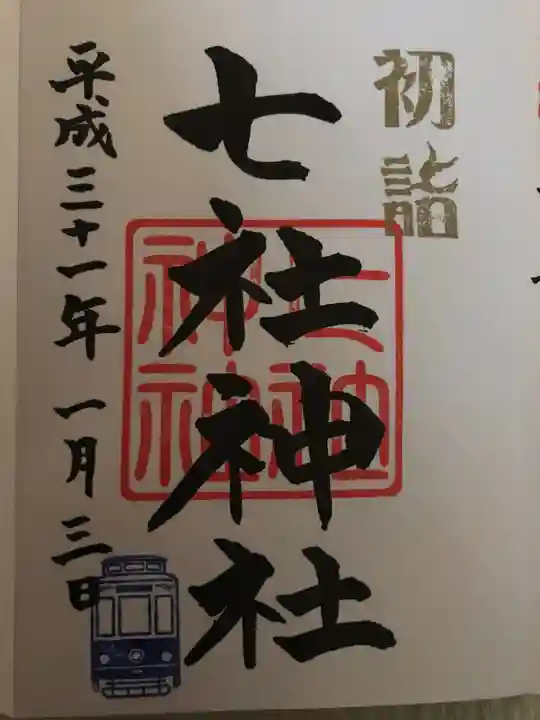 初詣
七社神社
七社
神社
平成三十一年一月三日